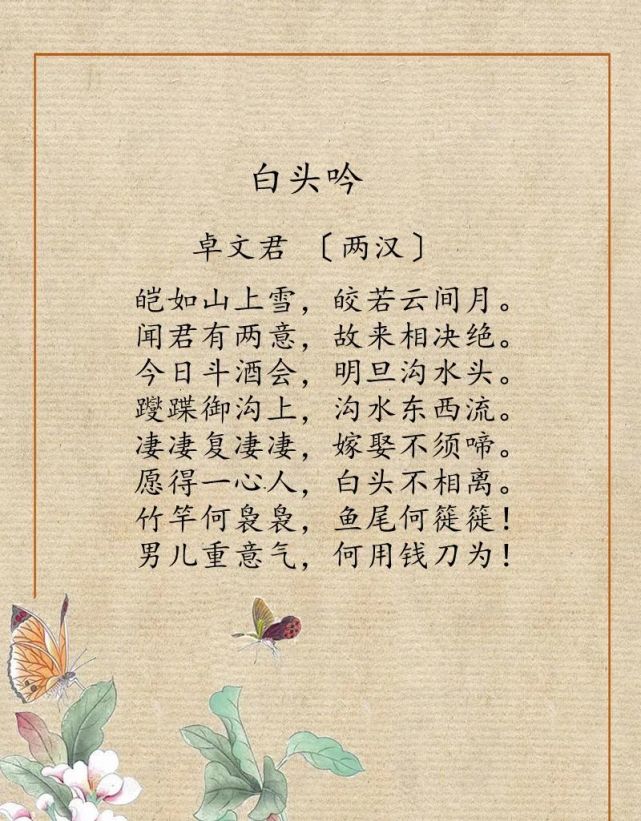 白头吟
卓文君 〔两汉〕
皑如山上雪，皎若云间月。
闻君有两意，故来相决绝。
今日斗酒会，明旦沟水头。
躞蹀御沟上，沟水东西流。
凄凄复凄凄，嫁娶不须啼。
愿得一心人，白头不相离。
竹竿何袅袅，鱼尾何簁簁！
男儿重意气，何用钱刀为！